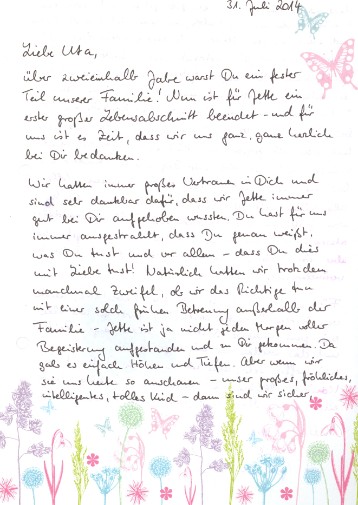 31. Juli 2014
Liebe Uta,
über zweieinhalb Jahre warst Du ein fester
Teil unserer Familie! Nun ist für Jette ein
erster großer Lebensabschnitt beendet - und für
uns ist es Zeit, dass wir uns ganz, ganz herzlich
bei Dir bedanken.
Wir hatten immer großes Vertrauen in Dich und
sind sehr dankbar dafür, dass wir Jette immer
gut bei Dir aufgehoben wussten. Du hast für uns
immer ausgestrahlt, dass Du genau weißt,
was Du tust und vor allem - dass Du dies
mit Liebe tust! Natürlich hatten wir trotzdem
manchmal Zweifel, ob wir das Richtige tun
mit einer solch frühen Betreuung außerhalb der
Familie - Jette ist ja nicht jeden Morgen voller
Begeisterung aufgestanden und zu Dir gekommen. Da
gab es einfach Höhen und Tiefen. Aber wenn wir
sie uns heute so anschauen - unser großes, fröhliches,
intelligentes, tolles Kind - dann sind wir sicher,